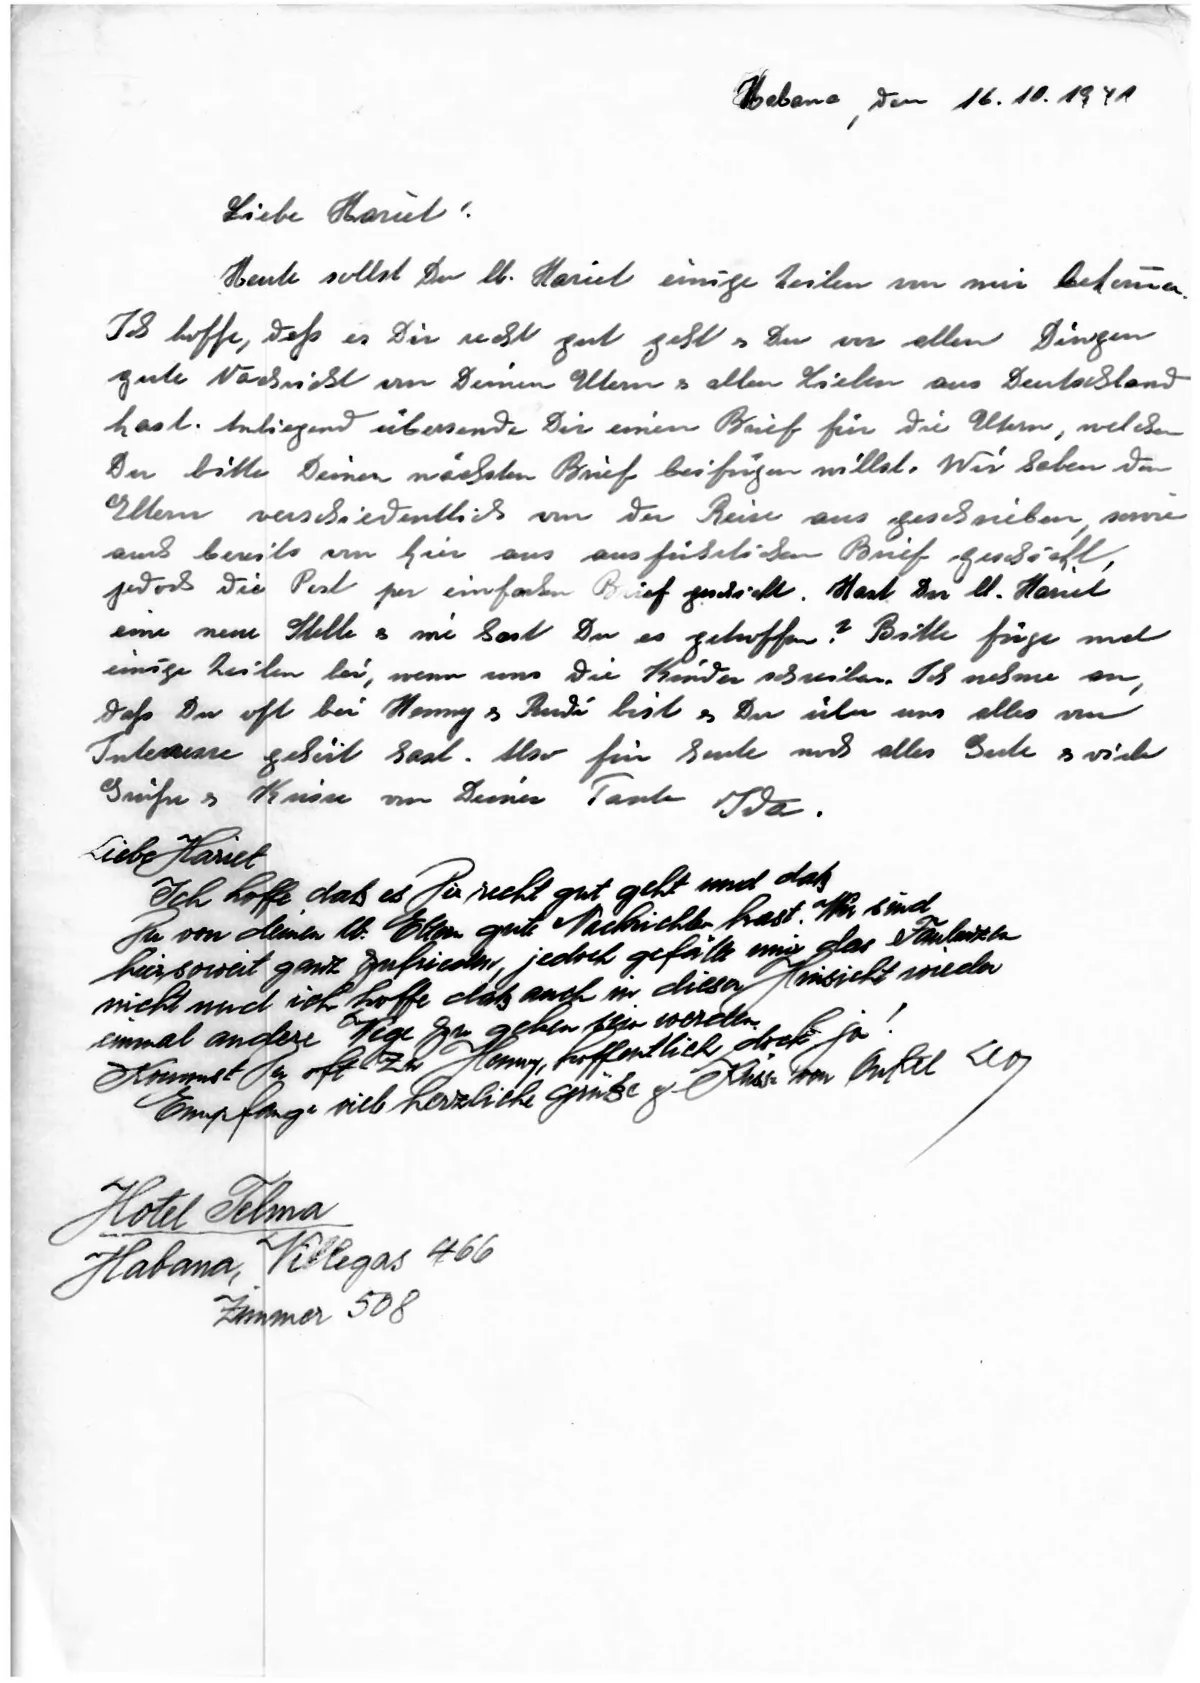 Habana, den 16.10.1941
Liebe Hariet!
Heute sollst Du lb. Hariet einige Zeilen von mir bekommen.
Ich hoffe, daß es Dir recht gut geht & Du vor allen Dingen
gute Nachricht von Deinen Eltern & allen Lieben aus Deutschland
hast. Anliegend übersende Dir einen Brief für die Eltern, welchen
Du bitte Deinen nächsten Brief beifügen willst. Wir haben den
Eltern verschiedentlich von der Reise aus geschrieben, sowie
auch bereits von hier aus ausführlichen Brief geschickt,
jedoch die Post per einfachen Brief geschickt. Hast Du lb. Hariet
eine neue Stelle & wie hast Du es getroffen? Bitte füge mal
einige Zeilen bei, wenn uns die Kinder schreiben. Ich nehme an,
daß Du oft bei Henny & Rudi bist & Du über uns alles von
Interesse gehört hast. Also für heute noch alles Gute & viele
Grüße & Küsse von Deiner Tante Ida.
Liebe Hariet
Ich hoffe daß es Dir recht gut geht und daß
Du von deinen lb. Eltern gute Nachrichten hast. Wir sind
hier soweit ganz zufrieden, jedoch gefällt mir das Faulenzen
nicht und ich hoffe daß auch in dieser Hinsicht wieder
einmal andere Wege zu gehen sein werden.
Kommst Du oft zu Henny, hoffentlich doch ja!
Empfange viele herzliche Grüße & Küsse von Onkel Leo
Hotel Telma
Habana, Villegas 466
Zimmer 508